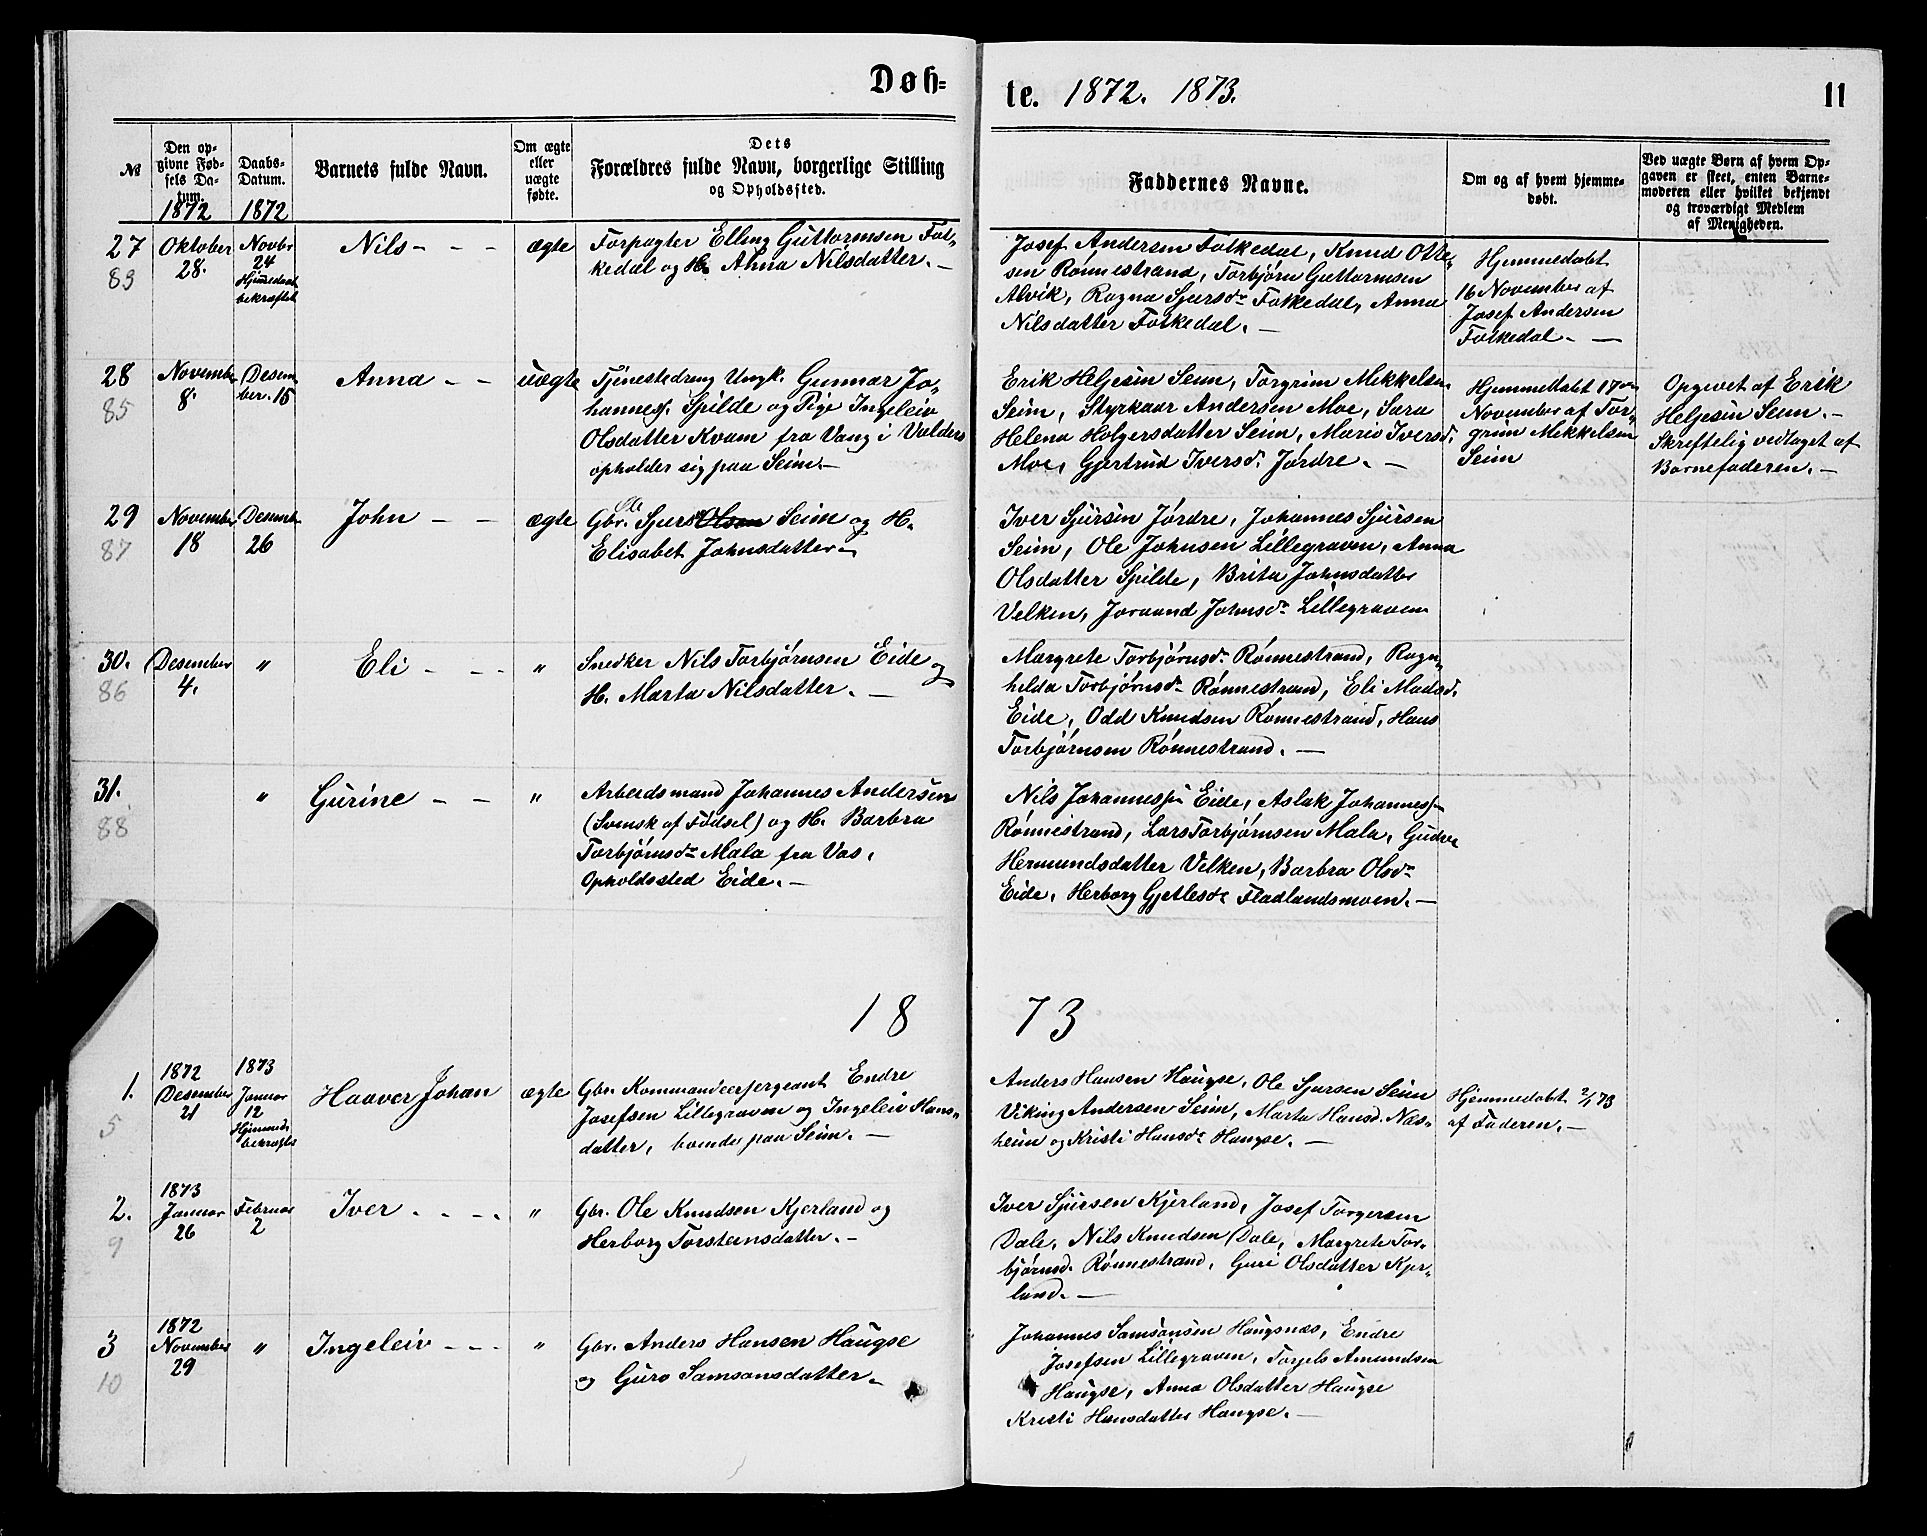 Døb-
te. 1872. 1873.
11
№
Den op-
givne Fød-
sels Da-
tum.
1872
Daabs-
Datum.
1872
Barnets fulde Navn.
Om ægte
eller
uægte
fødte.
Dets
Forældres fulde Navn, borgerlige Stilling
og Opholdssted.
Faddernes Navne.
Om og af hvem hjemme-
døbt.
Ved uægte Børn af hvem Op-
gaven er skeet, enten Barne-
moderen eller hvilket bekjendt
og troværdigt Medlem
af Menigheden.
27
83
Oktober
28.
Novbr
24
Hjemmedaab
bekræftet
Nils - - -
ægte
Forpagter Elling Guttormsen Fol-
kedal og H. Anna Nilsdatter. -
Josef Andersen Folkedal, Knud Otte-
sen Rønnestrand, Torbjørn Guttormsen
Alvik, Ragna Sjursdr Folkedal, Anna
Nilsdatter Folkedal. -
Hjemmedøbt
16 November af
Josef Andersen
Folkedal. -
28
85
November
8.
Desem-
ber. 15
Anna - -
uægte
Tjenestedreng Ungk. Gunnar Jo-
hanness. Spilde og Pige Ingeleiv
Olsdatter Kvam fra Vang i Valders
opholder sig paa Seim. -
Erik Heljesen Seim, Torgrim Mikkelsen
Seim, Styrkaar Andersen Moe, Sara
Helena Holgersdatter Seim, Mario Iversd.
Moe, Gjertrud Iversd. Jørdre. -
Hjemmedøbt 17de
November af Tor-
grim Mikkelsen
Seim
Opgivet af Erik
Heljesen Seim. -
Skreftelig vedtaget af
Barnefaderen. -
29
87
November
18
Desembr
26
John - -
ægte
Ole
Gbr. Sjurs Olsen Seim og H.
Elisabet Johnsdatter. -
Iver Sjursen Jørdre, Johannes Sjursen
Seim, Ole Johnsen Lillegraven, Anna
Olsdatter Spilde, Brita Johnsdatter
Velken, Joraand Johnsdr Lillegraven
30.
86
Desember
4.
"
Eli - - -
"
Snedker Nils Torbjørnsen Eide og
H. Marta Nilsdatter. -
Margrete Torbjørnsdr Rønnestrand, Ragn-
helda Torbjørnsdr Rønnestrand, Eli Madsd.
Eide, Odd Knudsen Rønnestrand, Hans
Torbjørnsen Rønnestrand. -
31.
88
"
Gurine - -
"
Arbeidsmand Johannes Andersen
(Svensk af Fødsel) og H. Barbra
Torbjørnsdr Mala fra Vos.
Opholdssted Eide. -
Nils Johannessen Eide, Aslak Johanness-
Rønnestrand, Lars Torbjørnsen Mala, Gudve
Hermundsdatter Velken, Barbra Olsdr
Eide, Herborg Gjetlesdr Fladlandsmoen. -
18 73
1.
5
1872
Desember
21
1873
Januar
12
Hjemmed.
bekræftet
Haaver Johan
ægte
Gbr. Kommandeersergeant Endre
Josefsen Lillegraven og Ingeleiv Hans-
datter, boende paa Seim. -
Anders Hansen Haugse, Ole Sjursen Seim
Viking Andersen Seim, Marta Hansd. Næs-
heim og Kristi Hansdr Haugse. -
Hjemmedøbt 2/1 73
af Faderen. -
2.
9
1873
Januar
26
Februar
2
Iver - - - -
"
Gbr. Ole Knudsen Kjerland og
Herborg Torsteinsdatter. -
Iver Sjursen Kjerland, Josef Torgersen
Dale, Nils Knudsen Dale, Margrete Tor-
bjørnsd. Rønnestrand, Guri Olsdatter Kjer-
land. -
3
10
1872
November
29
"
Ingeleiv - - -
"
Gbr. Anders Hansen Haugse
og Guro Samsonsdatter. -
Johannes Samsonsen Haugsnæs, Endre
Josefsen Lillegraven, Torjels Amundsen
Haugse, Anna Olsdatter Haugse
Kristi Hansdatter Haugse. -